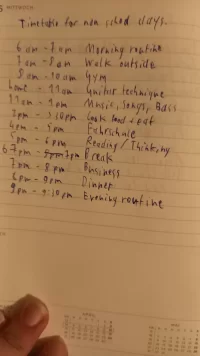 MITTWOCH
Timetable for non school days.
6 am - 7 am Morning routine
7 am - 8 am Walk outside
8 am - 10 am Gym
11 am Guitar technique
11 am - 1 pm Music, Songs, Bass
Cook food + eat
4 pm - 5 pm Fahrschule
5 pm - 6 pm Reading / Thinking
6 7 pm - 7 pm Break
7 pm - 8 pm Business
8 pm - 9 pm Dinner
9 pm - Evening routine